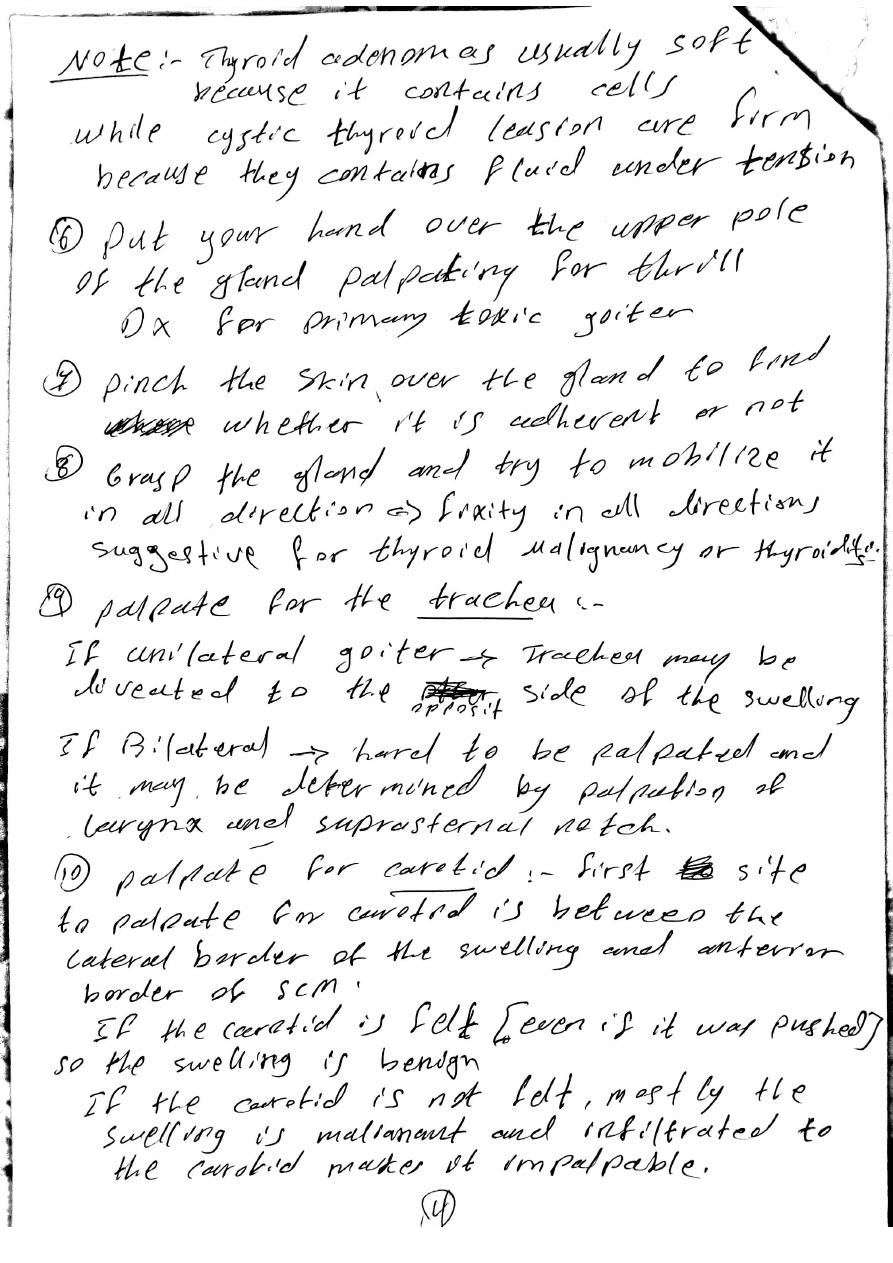 Note :- Thyroid adenomas usually soft
because it contains cells
while cystic thyroid leasion are firm
because they contains fluid under tension
6 put your hand over the upper pole
of the gland palpating for thrill
Dx for primary toxic goiter
7 pinch the skin over the gland to find
whether it is adherent or not
8 Grasp the gland and try to mobilize it
in all direction => fixity in all directions
suggestive for thyroid malignancy or thyroiditis.
9 palpate for the trachea :-
If unilateral goiter → Trachea may be
diveated to the opposit side of the swelling
If Bilateral → hard to be palpated and
it may be determined by palpation of
larynx and suprasternal notch.
10 palpate for carotid :- first site
to palpate for carotid is between the
lateral border of the swelling and anterior
border of SCM.
If the carotid is felt [even if it was pushed]
so the swelling is benign
If the carotid is not felt, mostly the
swelling is malianant and infiltrated to
the carotid makes it impalpable.
4